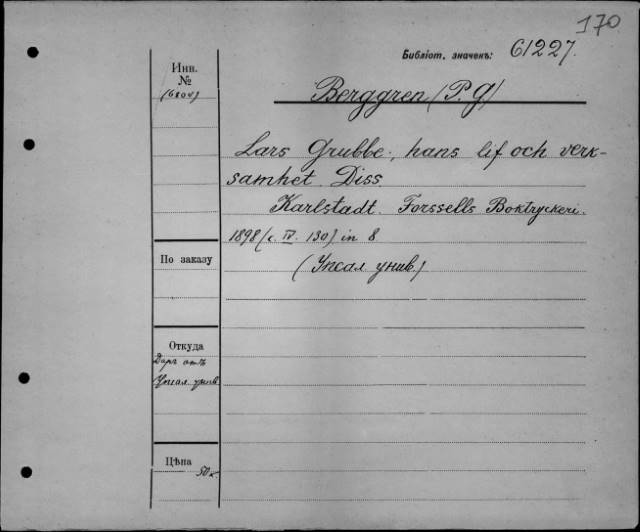 170
Библіот. значекъ: 61227.
Инв.
№
(6804)
Berggren (P. G)
Lars Grubbe, hans lif och verk-
samhet. Diss.
Karlstadt. Forssells Boktryckeri.
1898 (c. IV. 130) in 8
По заказу
(Упсал. унив.)
Откуда
Даръ отъ
Упсал. унив.
Цѣна
50 к.